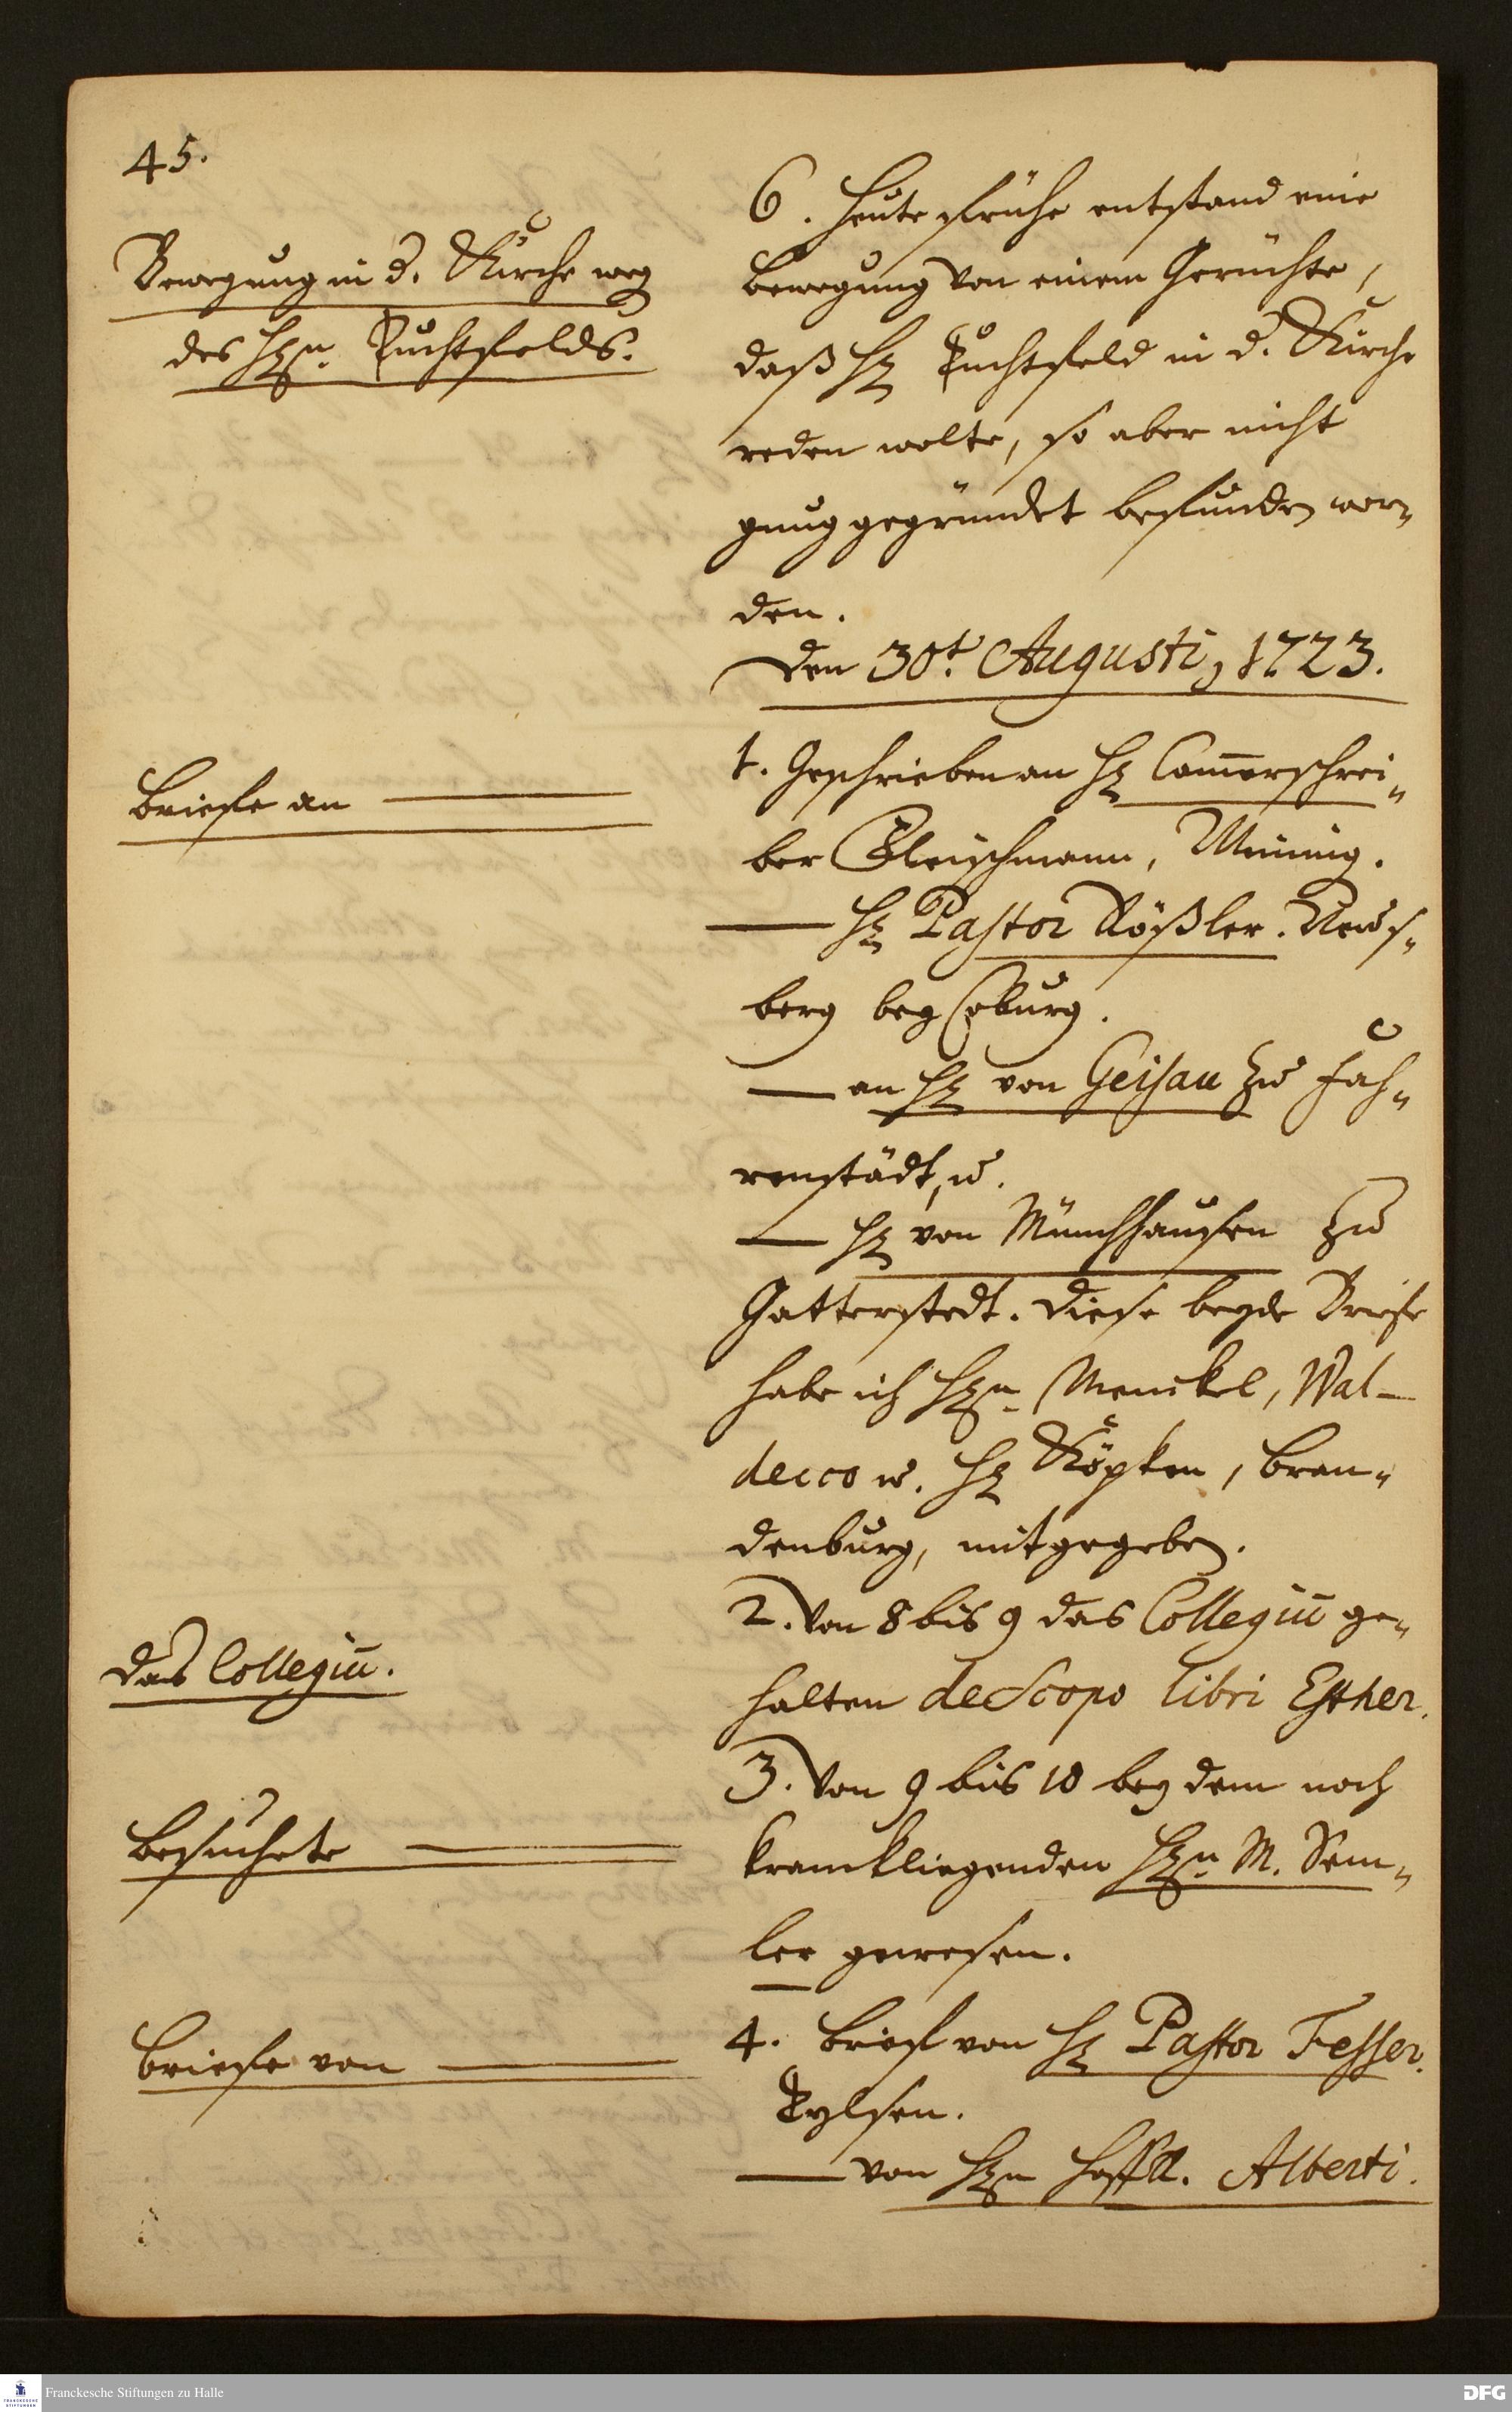 45.
Bewegung in d. Kirche weg
des Hrn. Tuchtfelds.
6. Heute frühe entstand eine
bewegung von einem Gerüchte,
daß Hr Tuchtfeld in d. Kirche
reden wolte, so aber nicht
gnug gegründet befunden wor-
den.
Den 30t. Augusti, 1723.
Briefe an
1. Geschrieben an Hr Cam̄erschrei-
ber Fleischmann, Meining.
Hr Pastor Rößler.
berg bey Coburg.
an Hr von Geisau zu Fah-
renstädt, u.
Hr von Münchhausen zu
Gatterstedt. Diese beyde Briefe
habe ich Hrn Menckel, Wal-
decco u. Hr Köpken, bran-
denburg, mitgegeben.
das Collegiū.
2. Von 8 bis 9 das Collegiū ge-
halten de Scopo libri Esther.
Besuchete
3. Von 9 bis 10 bey dem noch
kranckliegenden Hrn M. Sem-
ler gewesen.
Briefe von
4. brief von Hr Pastor Fesser.
Tylsen.
von Hrn Alberti.
Franckesche Stiftungen zu Halle
DFG